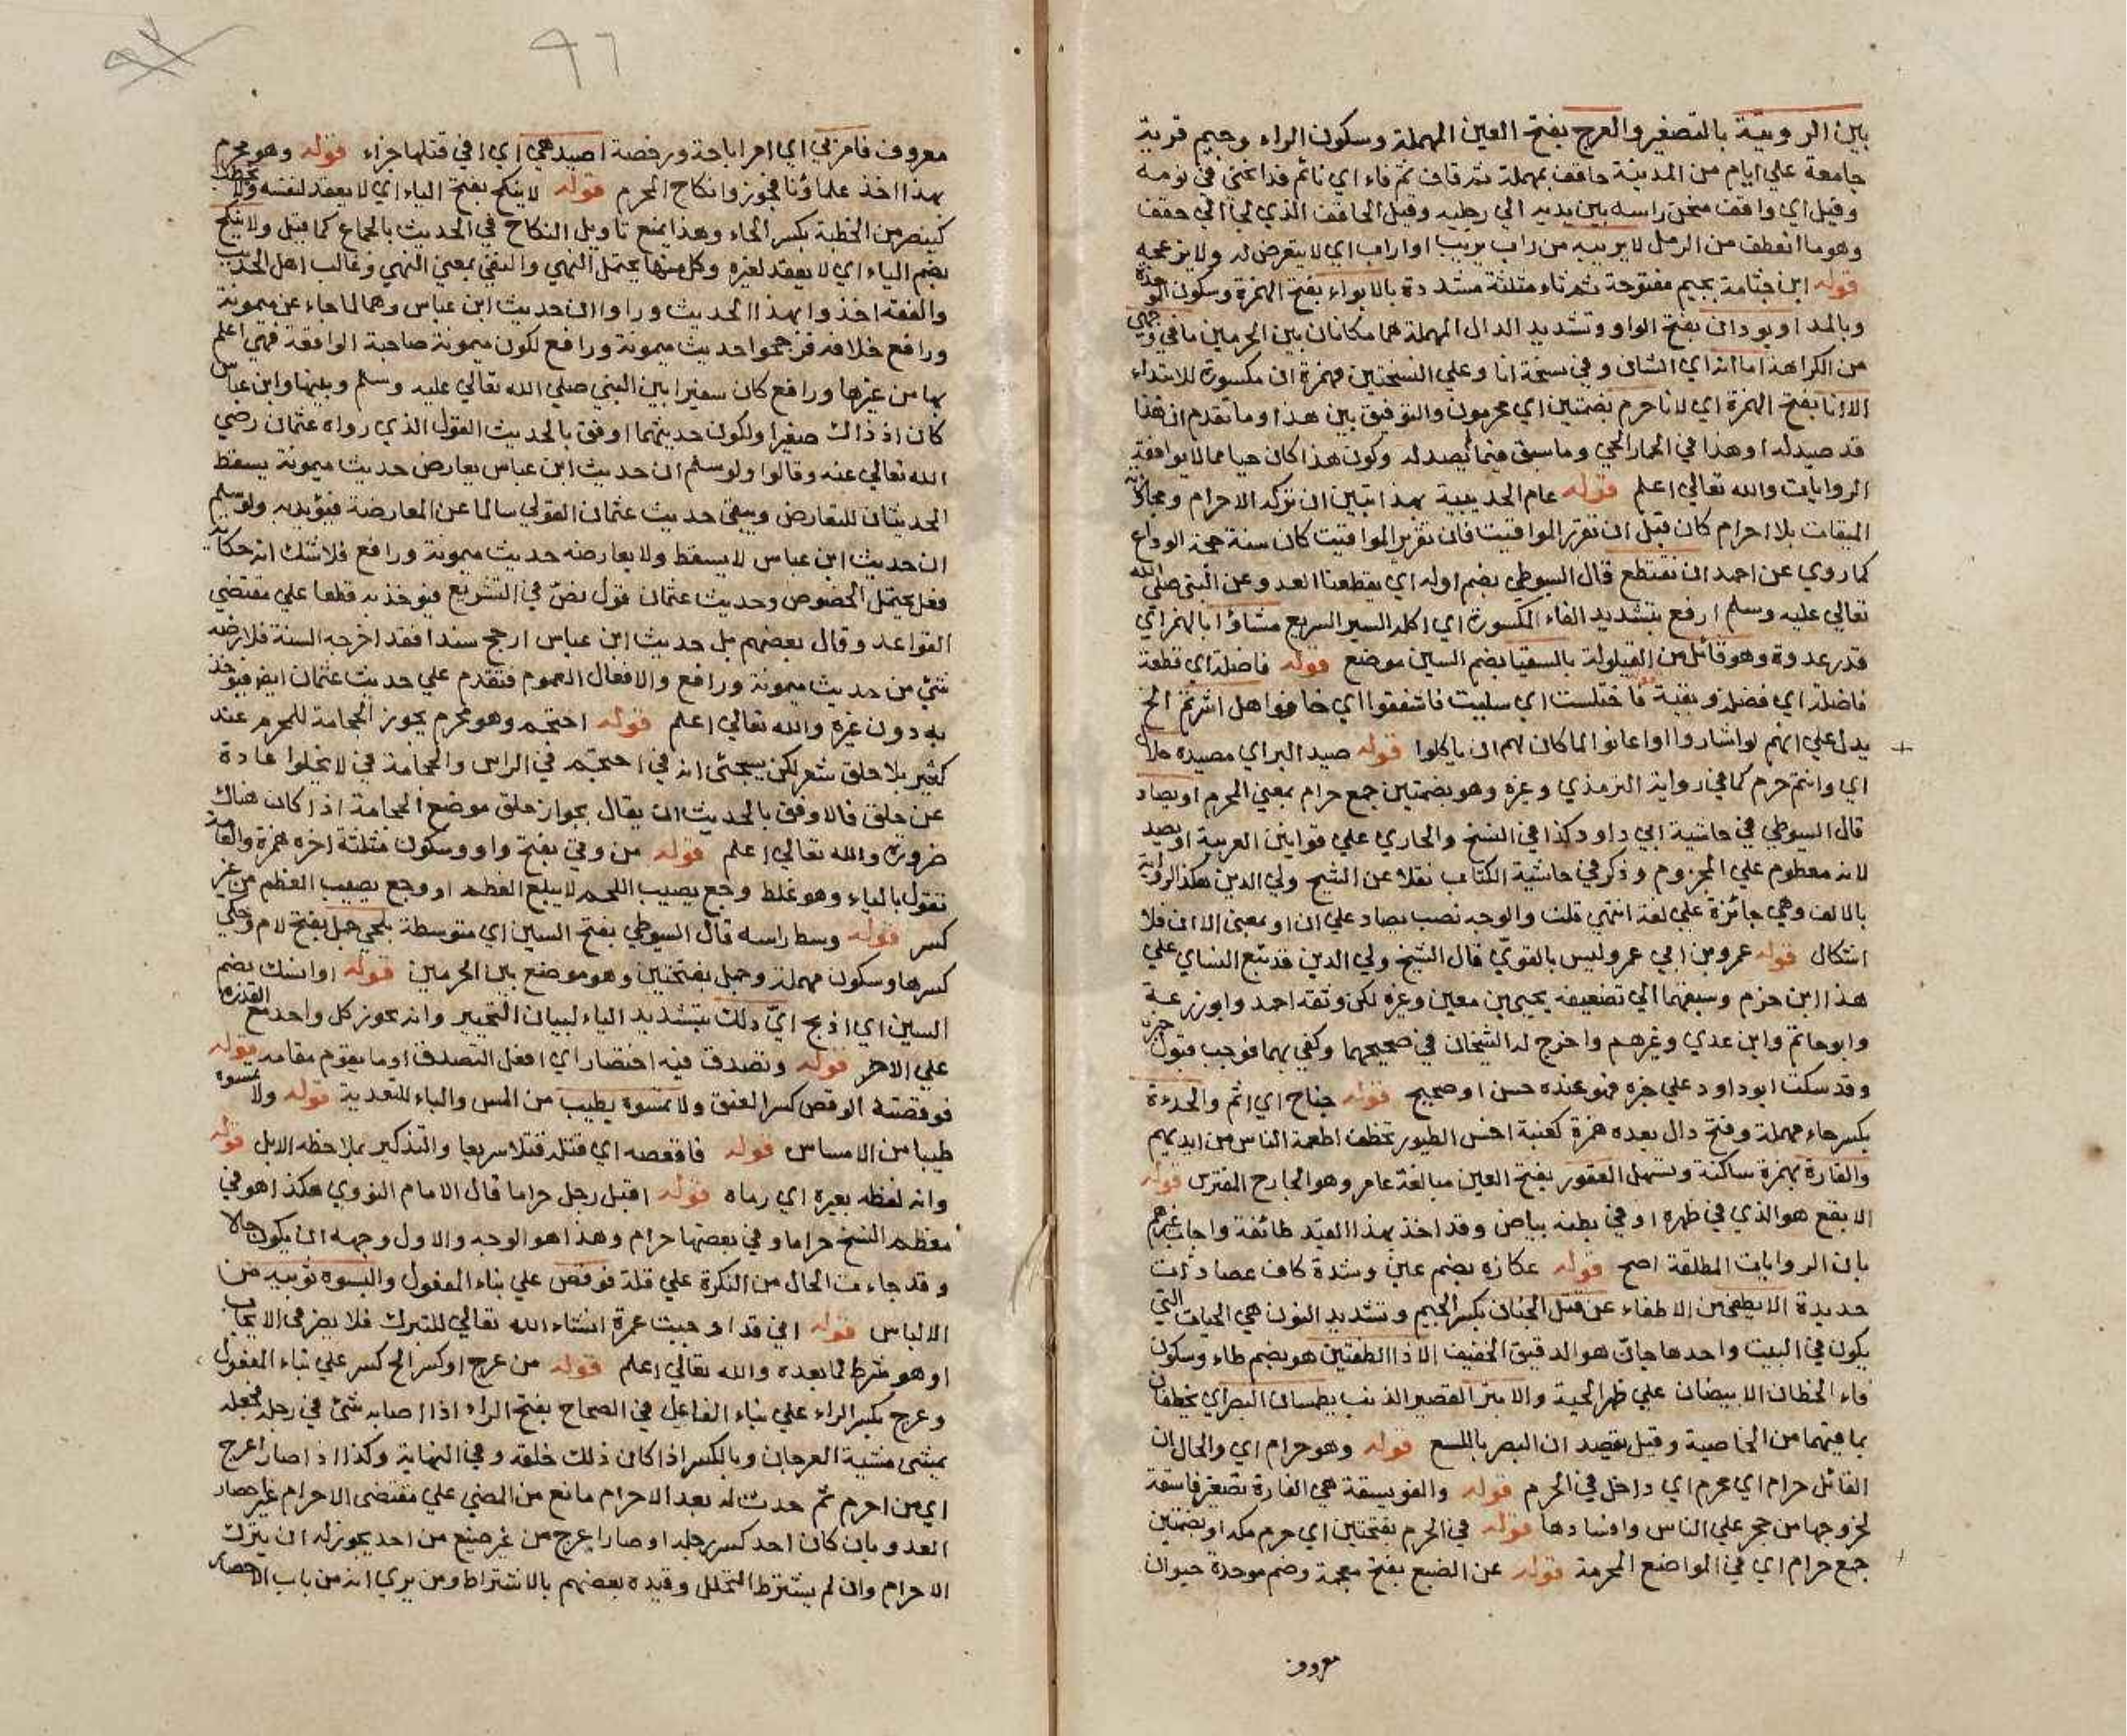 بين الرويثة بالتصغير والعرج بفتح العين المهملة وسكون الراء وجيم قرية
جامعة علي ايام من المدينة حاقف بمهملة ثم قاف ثم فاء اي نائم قد انحني في نومه
وقيل اي واقف منحن راسه بين يديه الي رجليه وقيل الحاقف الذي لجا الي حقف
وهو ما انعطف من الرمل لا يريبه من راب يريب او اراب اي لا يتعرض له ولا يزعجه
قوله ابن جثامة بجيم مفتوحة ثم ثاء مثلثة مشددة بالابواء بفتح الهمزة وسكون الموحدة
وبالمد او بودان بفتح الواو وتشديد الدال المهملة هما مكانان بين الحرمين ما في وجهي
من الكراهة اما انه اي الشان وفي نسخة انا وعلي النسختين فهمزة ان مكسورة للابتداء
الا انا بفتح الهمزة اي لانا حرم بضمتين اي محرمون والتوفيق بين هذا وما تقدم ان هذا
قد صيد له او هذا في الحمار الحي وما سبق فيما لم يصد له وكون هذا كان حيا مما لا يوافقه
الروايات والله تعالي اعلم قوله عام الحديبية بهذا تبين ان تركه الاحرام ومجاوزته
الميقات بلا احرام كان قبل ان تقرر المواقيت فان تقرير المواقيت كان سنة حجة الوداع
كما روي عن احمد ان نقتطع قال السيوطي بضم اوله اي يقطعنا العدو عن النبي صلي الله
تعالي عليه وسلم ارفع بتشديد الفاء المكسورة اي اكلفه السير السريع شاوا بالهمز اي
قدر عدوة وهو قائل من القيلولة بالسقيا بضم السين موضع قوله فاضلة اي قطعة
فاضلة اي فضلة وبقية فاختلست اي سلبت فاشفقوا اي خافوا هل اشرتم الخ
يدل علي انهم لو اشاروا او اعانوا لما كان لهم ان ياكلوا قوله صيد البر اي مصيده حلال
اي وانتم حرم كما في رواية الترمذي وغيره وهو بضمتين جمع حرام بمعني المحرم او يصاد
قال السيوطي في حاشية ابي داود كذا في النسخ والجاري علي قوانين العربية او يصد
لانه معطوف علي المجزوم وذكر في حاشية الكتاب نقلا عن الشيخ ولي الدين هكذا الرواية
بالالف وهي جائزة علي لغة انتهي قلت والوجه نصب يصاد علي ان او بمعني الا ان فلا
اشكال قوله عمرو بن ابي عمرو ليس بالقوي قال الشيخ ولي الدين قد تبع النساي علي
هذا ابن حزم وسبقهما الي تضعيفه يحيي بن معين وغيره لكن وثقه احمد وابو زرعة
وابو حاتم وابن عدي وغيرهم واخرج له الشيخان في صحيحهما وكفي بهما فوجب قبول خبره
وقد سكت ابو داود علي خبره فهو عنده حسن او صحيح قوله جناح اي اثم والحدءة
بكسر حاء مهملة وفتح دال بعده همزة كعنبة اخس الطيور تخطف اطعمة الناس من ايديهم
والفارة بهمزة ساكنة وتسهل العقور بفتح العين مبالغة عاقر وهو الجارح المفترس قوله
الابقع هو الذي في ظهره او في بطنه بياض وقد اخذ بهذا القيد طائفة واجاب غيرهم
بان الروايات المطلقة اصح قوله عكازة بضم عين وشدة كاف عصا ذات
حديدة الا يطفئ من الاطفاء عن قتل الجنان بكسر الجيم وتشديد النون هي الحيات التي
يكون في البيت واحدها جان هو الدقيق الخفيف الا ذا الطفيتين هو بضم طاء وسكون
فاء الخطان الابيضان علي ظهر الحية والابتر القصير الذنب يطمسان البصر اي يخطفان
بما فيهما من الخاصية وقيل يقصدان البصر باللسع قوله وهو حرام اي والحال ان
القائل حرام اي محرم اي داخل في الحرم قوله والفويسقة هي الفارة تصغير فاسقة
لخروجها من جحر علي الناس وافسادها قوله في الحرم بفتحتين اي حرم مكة او بضمتين
جمع حرام اي في المواضع المحرمة قوله عن الضبع بفتح معجمة وضم موحدة حيوان
معروف
٩٦
معروف فامرني اي امر اباحة ورخصة اصيد هي اي افي قتلها جزاء قوله وهو محرم
بهذا اخذ علماؤنا فجوزوا نكاح المحرم قوله لا ينكح بفتح الياء اي لا يعقد لنفسه ولا يخطب
كينصر من الخطبة بكسر الخاء وهذا يمنع تاويل النكاح في الحديث بالجماع كما قيل ولا ينكح
بضم الياء اي لا يعقد لغيره وكل منهما يحتمل النهي والنفي بمعني النهي وغالب اهل الحديث
والفقه اخذوا بهذا الحديث وراوا ان حديث ابن عباس وهم لما جاء عن ميمونة
ورافع خلافه فرجحوا حديث ميمونة ورافع لكون ميمونة صاحبة الواقعة فهي اعلم
بها من غيرها ورافع كان سفيرا بين النبي صلي الله تعالي عليه وسلم وبينها وابن عباس
كان اذ ذاك صغيرا ولكون حديثهما اوفق بالحديث القول الذي رواه عثمان رضي
الله تعالي عنه وقالوا ولو سلم ان حديث ابن عباس يعارض حديث ميمونة يسقط
الحديثان للتعارض ويبقي حديث عثمان القولي سالما عن المعارضة فيؤخذ به ولو سلم
ان حديث ابن عباس لا يسقط ولا يعارضه حديث ميمونة ورافع فلا شك انه حكاية
فعل يحتمل الخصوص وحديث عثمان قول نص في التشريع فيؤخذ به قطعا علي مقتضي
القواعد وقال بعضهم بل حديث ابن عباس ارجح سندا فقد اخرجه الستة فلا يعارضه
شئ من حديث ميمونة ورافع والافعال العموم فتقدم علي حديث عثمان ايضا فيؤخذ
به دون غيره والله تعالي اعلم قوله احتجم وهو محرم يجوز الحجامة للمحرم عند
كثير بلا حلق شعر لكن سيجئ انه في احتجم في الراس والحجامة في لا يخلوا عادة
عن حلق فالاوفق بالحديث ان يقال بجواز حلق موضع الحجامة اذا كان هناك
ضرورة والله تعالي اعلم قوله من وثئ بفتح واو وسكون مثلثة اخره همزة والعامة
تقول بالياء وهو غلط وجع يصيب اللحم لا يبلغ العظم او وجع يصيب العظم من غير
كسر قوله وسط راسه قال السيوطي بفتح السين اي متوسطة بلحي جمل بفتح لام وحكي
كسرها وسكون مهملة وجمل بفتحتين وهو موضع بين الحرمين قوله او انسك بضم
السين اي اذبح اي ذلك بتشديد الياء لبيان التخيير وانه يجوز كل واحد مع القدرة
علي الاخر قوله وتصدق فيه اختصار اي افعل التصدق او ما يقوم مقامه قوله
فوقصته الوقص كسر العنق ولا تمسوه بطيب من المس والباء للتعدية قوله ولا تمسوه
طيبا من الامساس قوله فاقعصه اي قتله قتلا سريعا والتذكير بملاحظة الابل قوله
وانه لفظه بعيره اي رماه قوله اقبل رجل حراما قال الامام النووي هكذا هو في
معظم النسخ حراما وفي بعضها حرام وهذا هو الوجه والاول وجهه ان يكون حالا
وقد جاءت الحال من النكرة علي قلة فوقص علي بناء المفعول والبسوه ثوبيه من
الالباس قوله اني قد اوجبت عمرة انشاء الله تعالي للتبرك فلا يضر في الايجاب
او هو شرط لما بعده والله تعالي اعلم قوله من عرج او كسر الخ كسر علي بناء المفعول
وعرج بكسر الراء علي بناء الفاعل في الصحاح بفتح الراء اذا اصابه شئ في رجله فجعل
يمشي مشية العرجان وبالكسر اذا كان ذلك خلقة وفي النهاية وكذا اذا صار اعرج
اي من احرم ثم حدث له بعد الاحرام مانع من المضي علي مقتضي الاحرام غير احصار
العدو بان كان احد كسر رجله او صار اعرج من غير صنيع من احد يجوز له ان يترك
الاحرام وان لم يشترط التحلل وقيده بعضهم بالاشتراط ومن يري انه من باب الاحصار